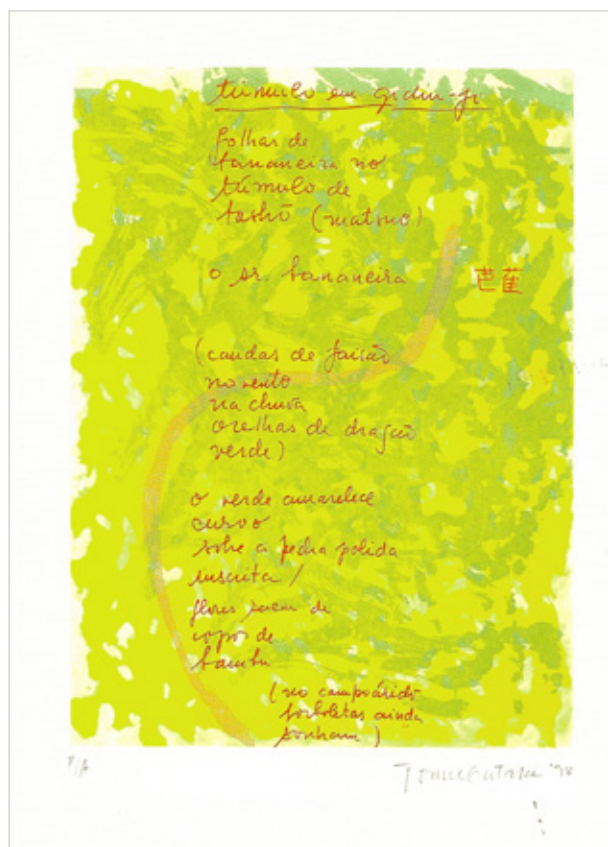 túmulo em gidiu-ji
folhas de
bananeira no
túmulo de
bashō (matsuo)
o sr. bananeira 芭蕉
(caudas de faisão
no vento
na chuva
orelhas de dragão
verde)
o verde amarelece
curvo
sobre a pedra polida
inscrita /
flores saem de
copos de
bambu
(no campo árido
borboletas ainda
sonham)
P/A
Tomie Ohtake '98